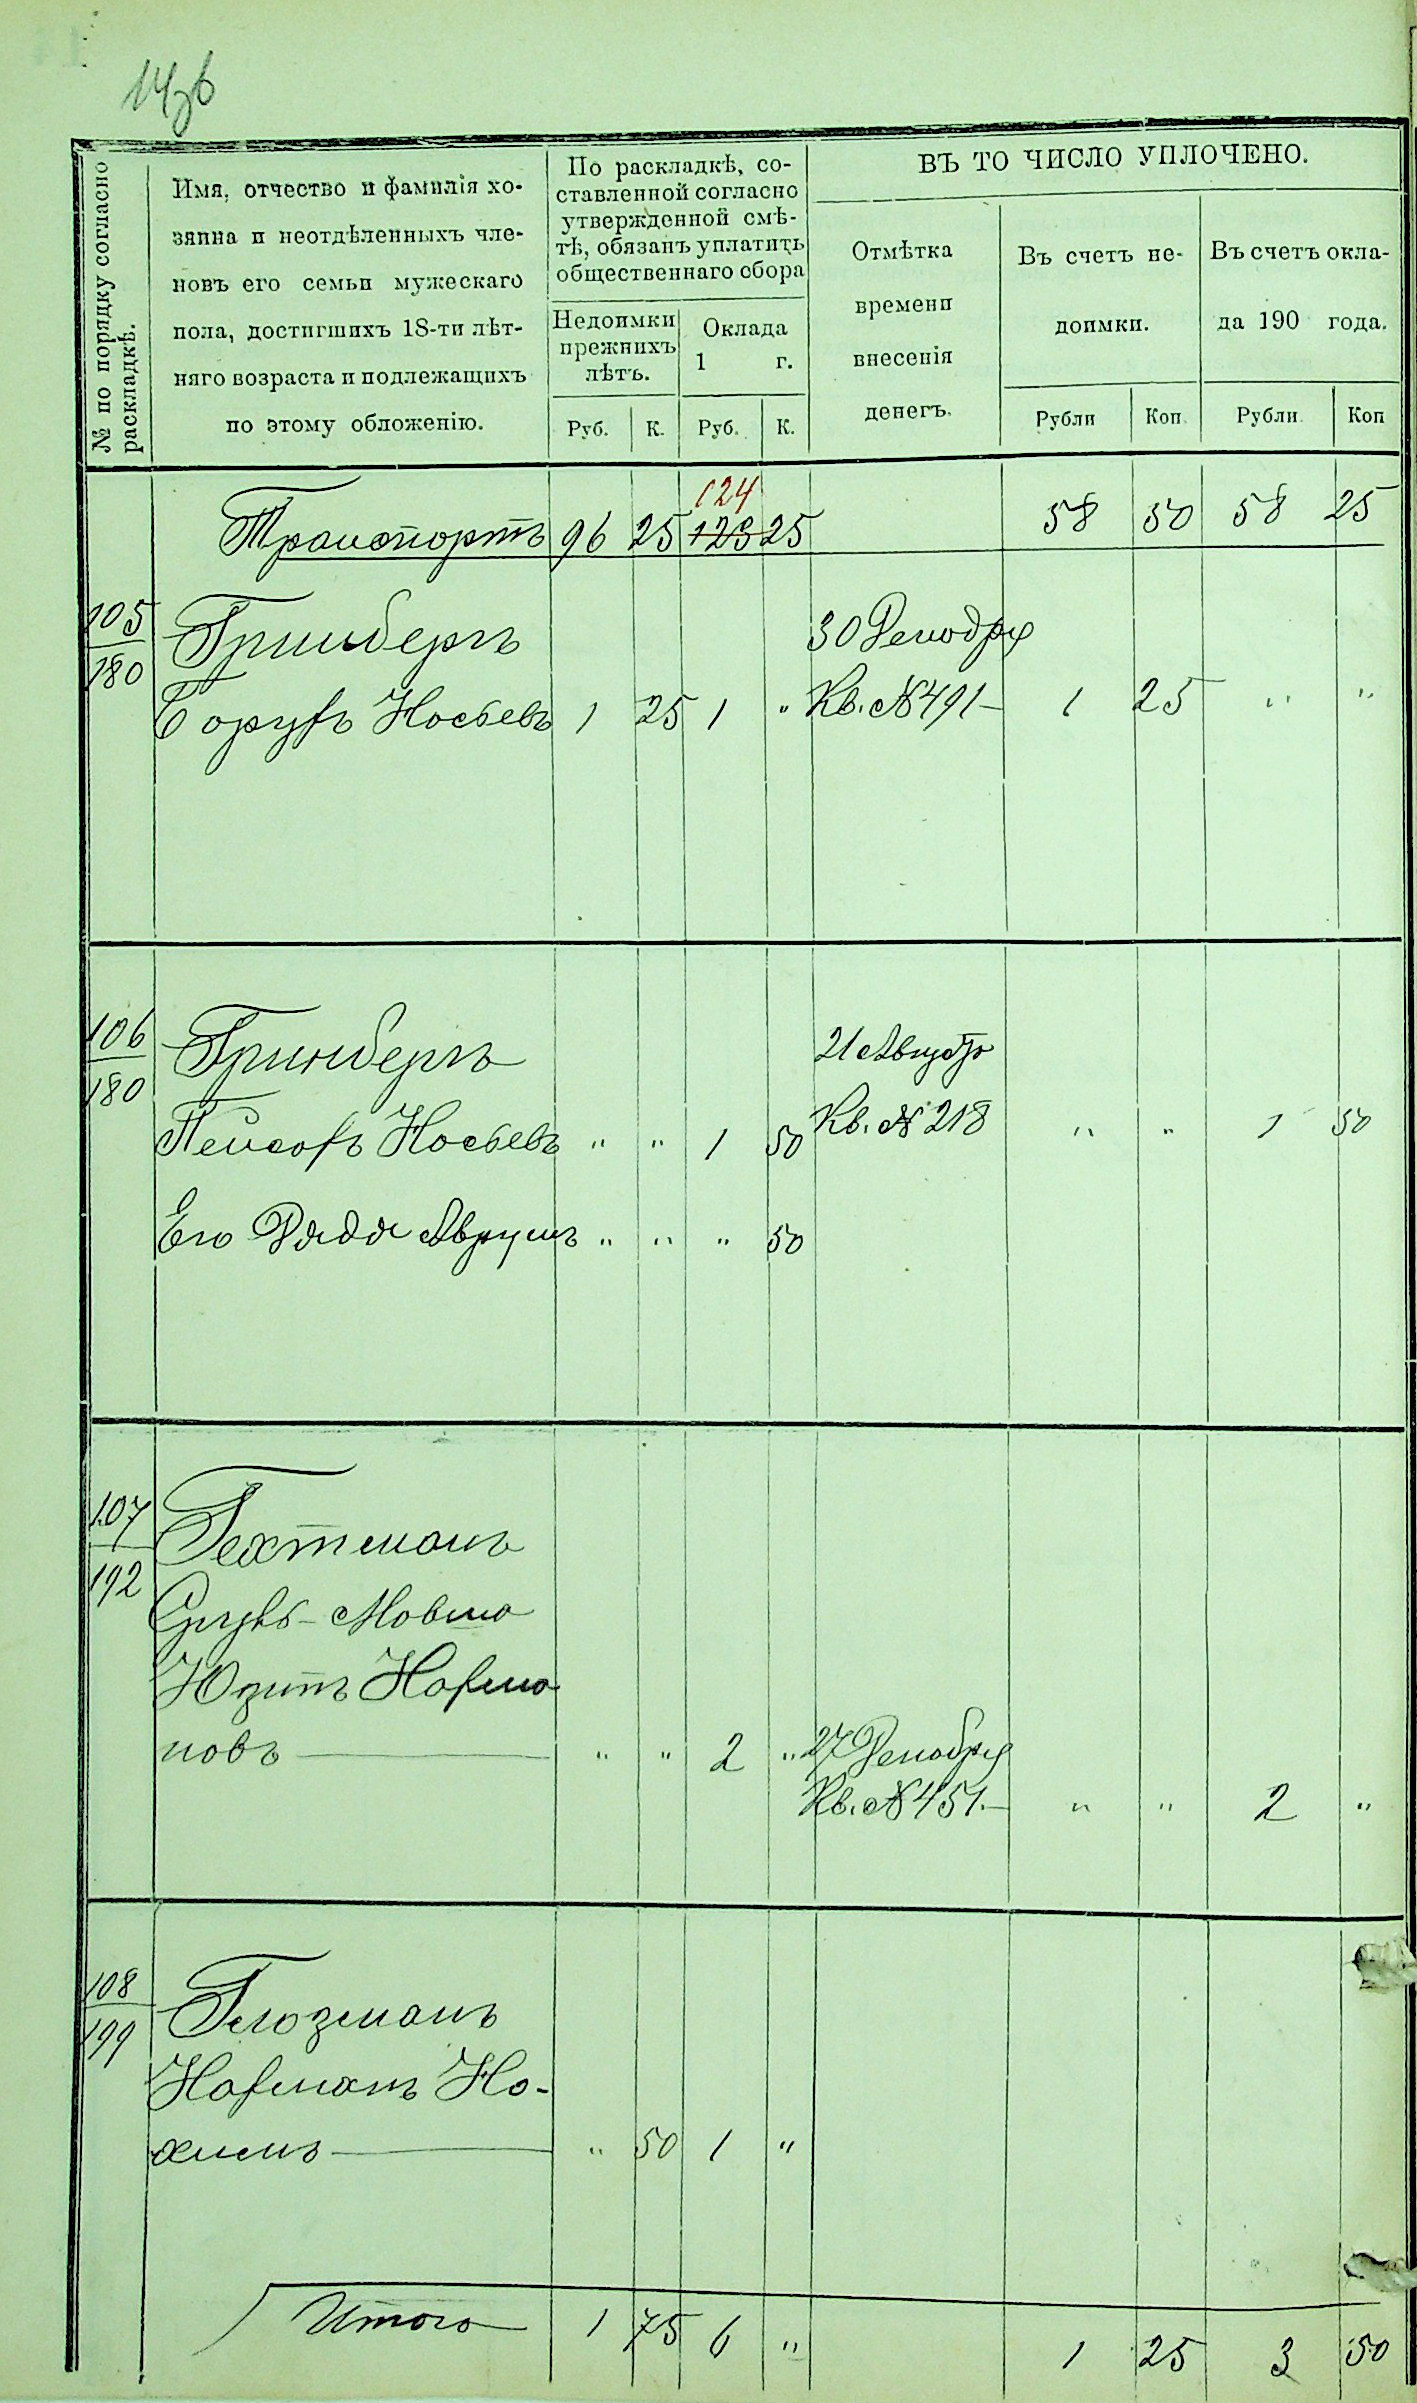 14об
№ по порядку согласно раскладкѣ.
Имя, отчество и фамилія хо-
зяина и неотдѣленныхъ чле-
новъ его семьи мужескаго
пола, достигшихъ 18-ти лѣт-
няго возраста и подлежащихъ
по этому обложенію.
По раскладкѣ, со-
ставленной согласно
утвержденной смѣ-
тѣ, обязанъ уплатить
общественнаго сбора
Недоимки
прежнихъ
лѣтъ.
Оклада
1 г.
Руб. К. Руб. К.
ВЪ ТО ЧИСЛО УПЛОЧЕНО.
Отмѣтка
времени
внесенія
денегъ.
Въ счетъ не-
доимки.
Въ счетъ окла-
да 190 года.
Рубли Коп. Рубли. Коп
124
Транспортъ 96 25 123 25 58 50 58 25
105 Гринбергъ 30 Декабря
180
Борухъ Носьевъ 1 25 1 " Кв. № 491 — 1 25 " "
106 Гринбергъ 21 Августа
180
Пейсахъ Носьевъ " " 1 50 Кв. № 218 " " 1 50
Его Дядя Аврумъ " " " 50
107 Гехтманъ
192
Сруль-Мовша
Юзипъ Нахма
новъ — " " 2 " 27 Декабря
Кв. № 451. — " " 2 "
108 Глозманъ
199
Нахманъ Но-
химъ — " 50 1 "
Итого 1 75 6 " 1 25 3 50